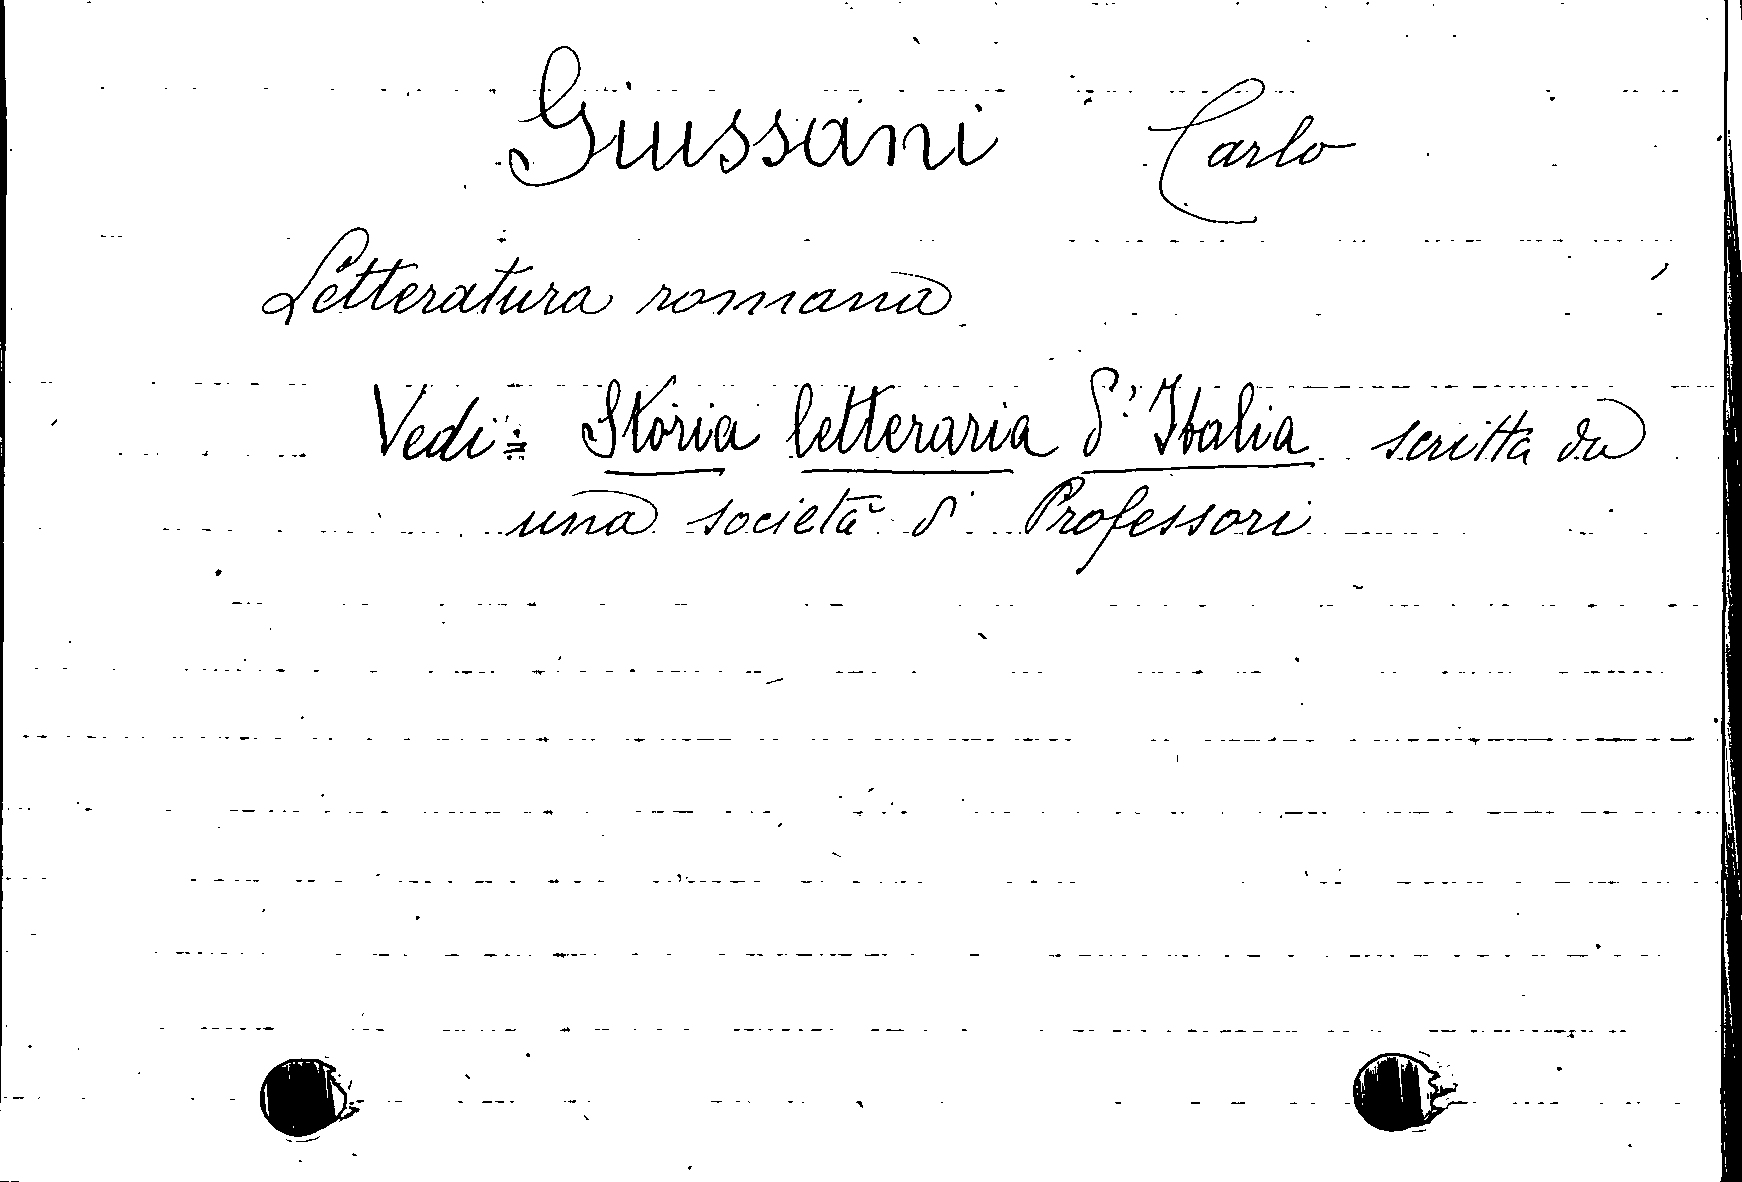 Giussani Carlo
Letteratura romana
Vedi: Storia letteraria d'Italia scritta da
una società di Professori